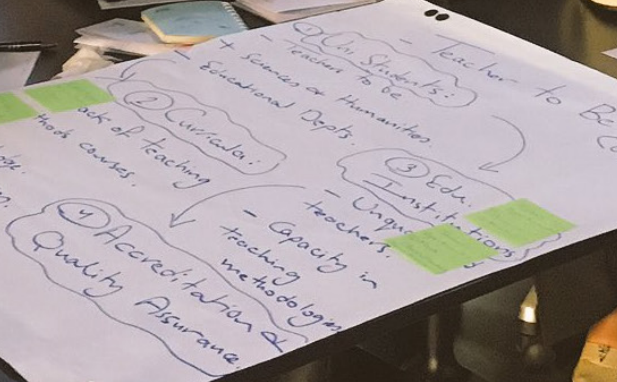 - Teacher to Be
① Uni. Students:
- Teachers to be
+ Sciences or Humanities
- Educational Depts.
② Curricula:
ack of teaching
thods courses.
③ Edu.
Institutions
- Unqu
teachers.
- Capacity in
teaching
methodologies
④ Accreditation &
Quality Assurance.